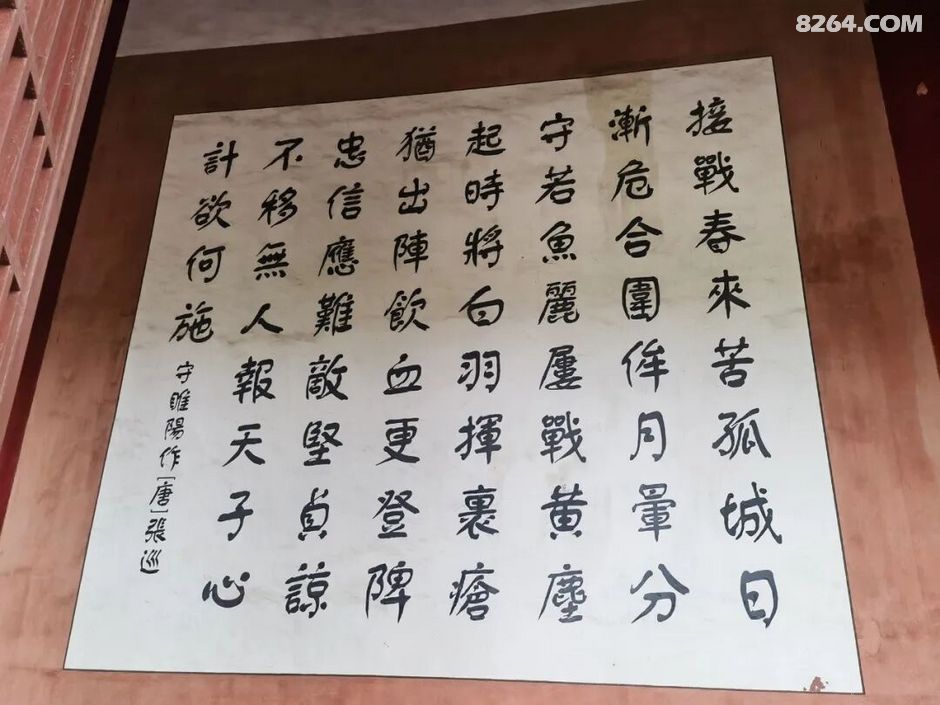 8264.COM
接戰春來苦孤城日
漸危合圍侔月暈分
守若魚麗屢戰黄塵
起時將白羽揮裹瘡
猶出陣飲血更登陴
忠信應難敵堅貞諒
不移無人報天子心
計欲何施
守睢陽作[唐]張巡